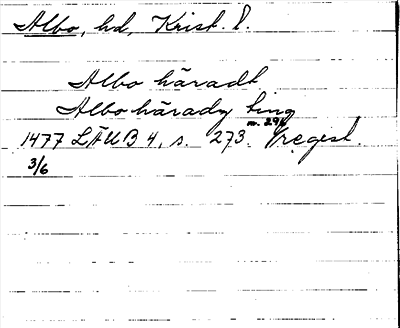 Albo, hd, Krist. l.
Albo häradt
Albo härady ting
1477 LÄUB 4, s. 273. regest.
m. 296
3/6